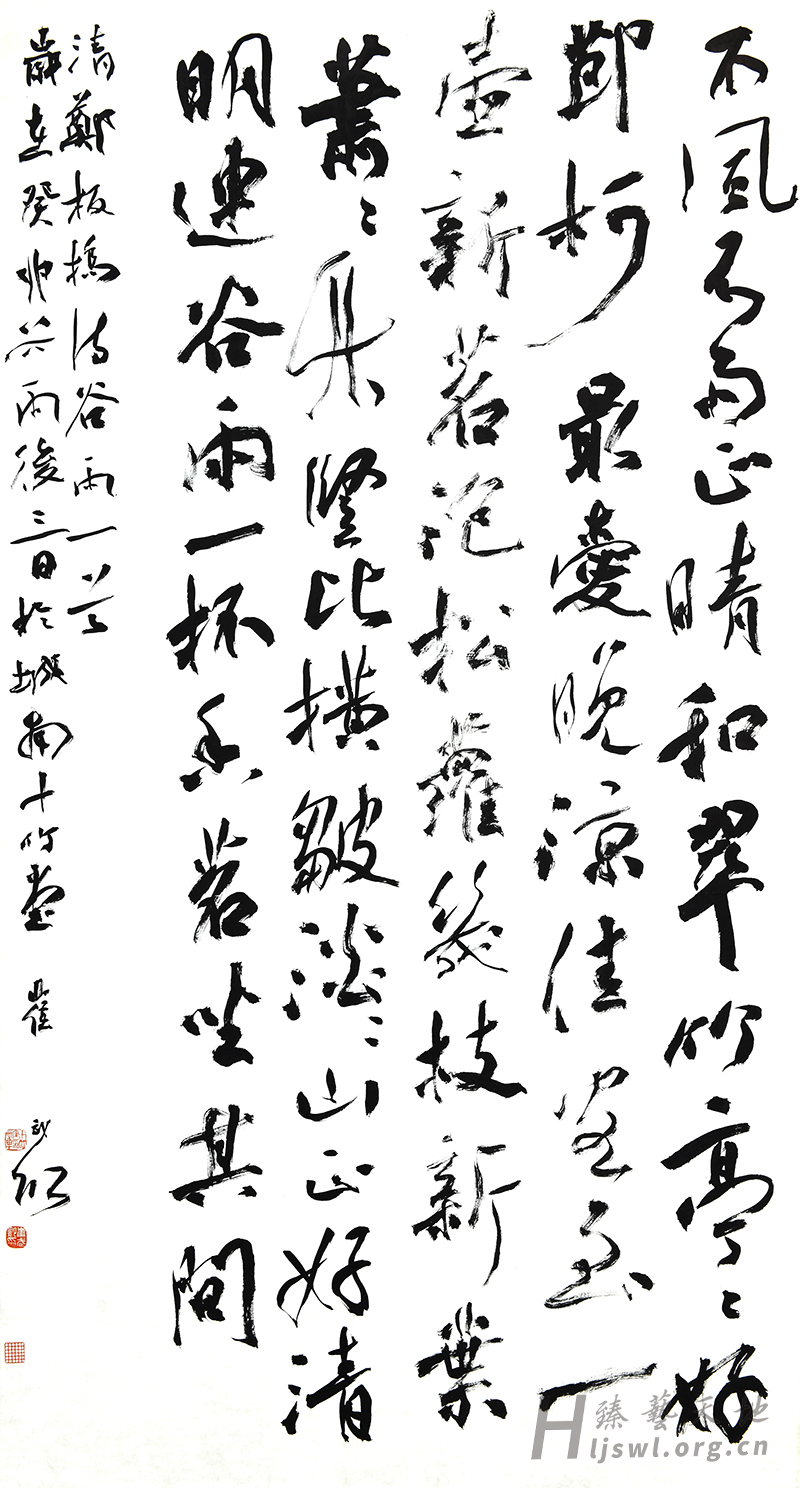 不風不雨正晴和翠竹亭〻好
節柯最愛晚涼佳客至一
壺新茗泡松蘿幾枝新葉
蕭〻集豎比橫皺淡〻山正好清
明連谷雨一杯香茗坐其間
清鄭板橋詩谷雨一首
歲在癸卯谷雨後三日於城南十竹堂 崔
臻藝 地
ljswl.org.cn